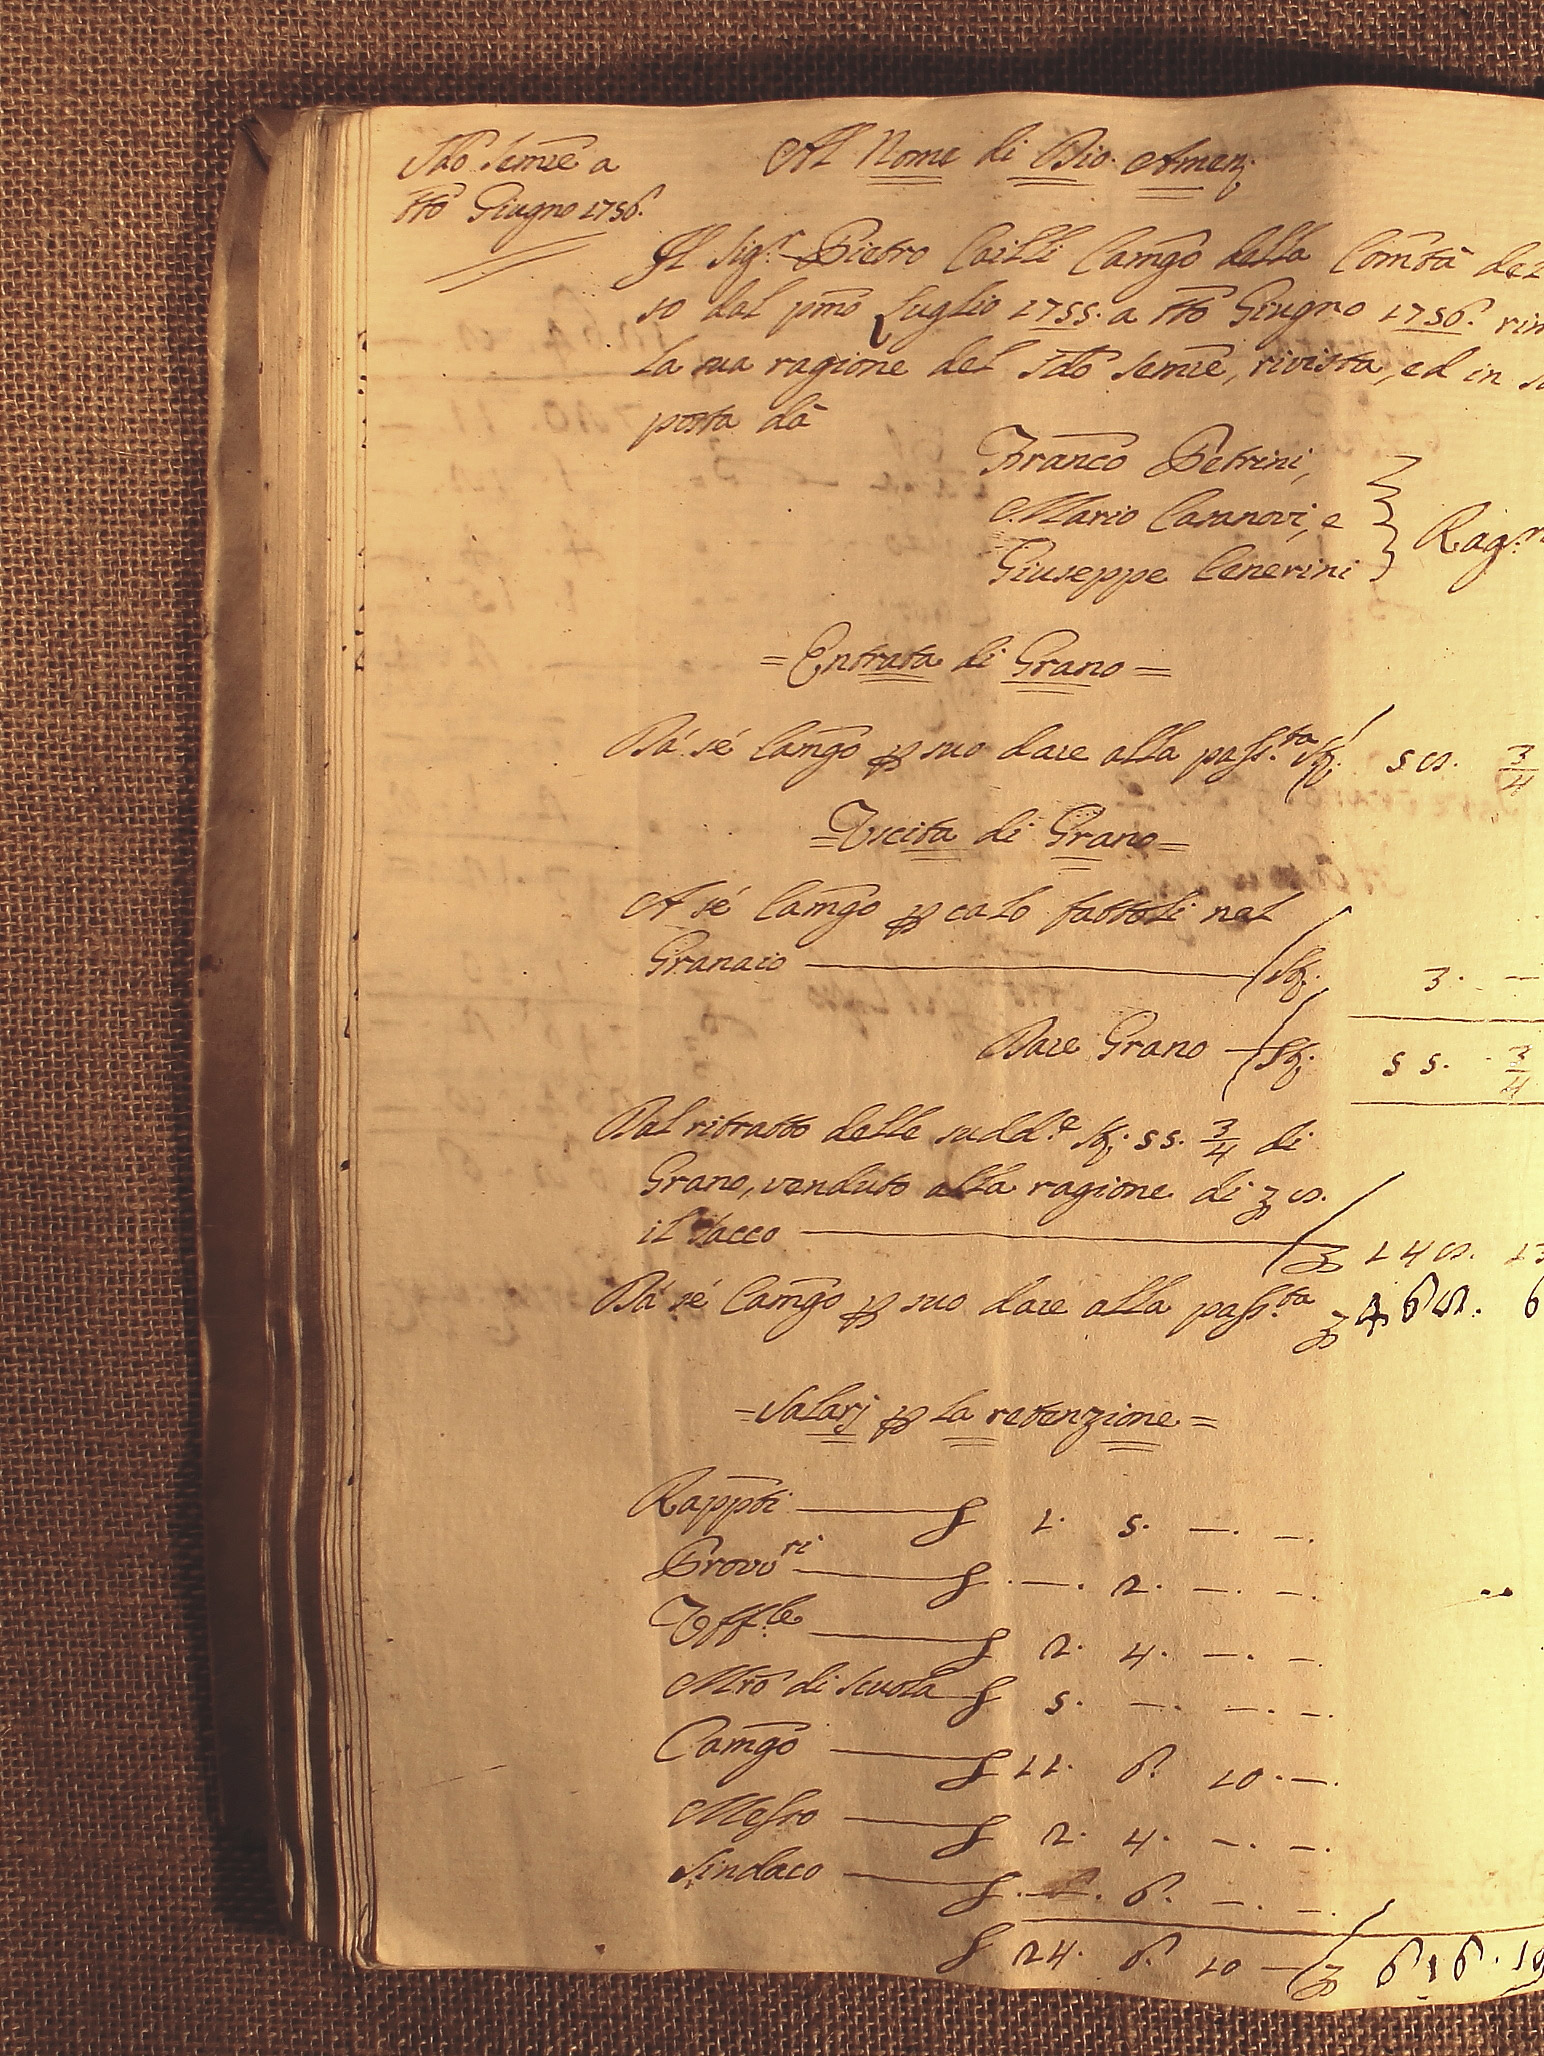 Sdō Semrē a
ttō Giugno 1756.
Al Nome di Dio. Amen.
Il Sig.r Pietro Cailli Camgō della Comtā del
so dal pmō Luglio 1755. a ttō Giugno 1756. rin
la sua ragione del Sdō Semrē, rivista, ed in
posta dà
Francō Petrini,
Mario Casanovi, e
Giuseppe Cenerini
Rag.n
= Entrata di Grano =
Da sé Camgō p suo dare alla pass.ta St. 58. 3/4
= Vscita di Grano =
A sé Camgō p calo fattoli nel
Granaio St. 3. —
Dare Grano — St. 55. 3/4
Dal ritratto delle sudd.e St. 55. 3/4 di
Grano, venduto alla ragione di 8.
il Sacco 148. 13
Da sé Camgō p suo dare alla pass.ta 468. 6
= Salarj p la retenzione =
Rapptī 1. 5. —. —.
Provv.ri . —. 2. —. —.
Vff.le 2. 4. —. —.
Mrō di Scuola 5. —. —. —.
Camgō 11. 6. 10. —.
Messo 2. 4. —. —.
Sindaco . —. 6. —. —.
24. 6. 10 — 616. 10